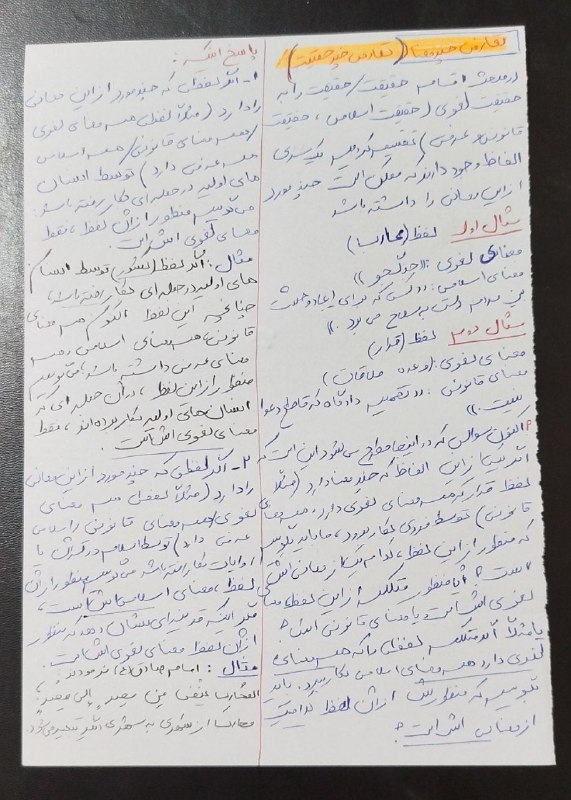 تعارض حقیقت‌ها (تعارض چند حقیقت)
در مبحث اقسام حقیقت، حقیقت را به
حقیقت لغوی (حقیقت اسلامی، حقیقت
قانونی و عرفی) تقسیم کردیم یک سری
الفاظ وجود دارند که ممکن است چند مورد
از این معانی را داشته باشد
مثال اول لفظ (محارب)
معنای لغوی: ((جنگجو))
معنای اسلامی: ((کسی که برای ایجاد وحشت
بین مردم دست به سلاح می‌برد.))
مثال دوم لفظ (قرار)
معنای لغوی: (وعده ملاقات)
معنای قانونی: ((تصمیم دادگاه که قاطع دعوا
نیست.))
اکنون سوالی که در اینجا مطرح می‌شود این است که
اگر یکی از این الفاظ که چند معنا دارد (مثلاً
لفظ قرار که هم معنای لغوی دارد، هم معنای
قانونی) توسط فردی بکار برود، ما باید بگوییم
که منظور از این لفظ، کدام یک از معانی اش
است؟ آیا منظور متکلم از این لفظ، معنای
لغوی اش است یا معنای قانونی اش؟
یا مثلاً اگر متکلم لفظی را که هم معنای
لغوی دارد هم معنای اسلامی بکار ببرد، باید
بگوییم که منظورش از آن لفظ کدامیک
از معانی اش است؟
پاسخ اینکه:
۱- اگر لفظی که چند مورد از این معانی
را دارد (مثلاً لفظی هم معنای لغوی
/ هم معنای قانونی / هم اسلامی
هم عرفی دارد) توسط انسان
های اولیه در جمله ای بکار رفته باشد:
می‌گوییم منظور از آن لفظ، فقط
معنای لغوی اش است.
مثال: اگر لفظ توسط انسان
های اولیه در جمله ای بکار رفته باشد،
چنانچه این لفظ اکنون هم معنای
قانونی، هم معنای اسلامی و هم
معنای عرفی داشته باشد، می‌گوییم
منظور از این لفظ، در آن جمله ای که
انسان‌های اولیه بکار برده اند، فقط
معنای لغوی اش است.
۲- اگر لفظی که چند مورد از این معانی
را دارد (مثلاً لفظی هم معنای
لغوی / هم معنای قانونی و اسلامی
عرفی دارد) توسط اسلام در قرآن یا
روایات بکار رفته باشد، می‌گوییم منظور از آن
لفظ، معنای اسلامی اش است،
مگر اینکه قرینه ای نشان دهد که منظور
از آن لفظ معنای لغوی اش است.
مثال: امام صادق (ع) فرمودند:
المحارب ینفی من مصر إلی مصر
محارب از شهری به شهری دیگر تبعید می‌شود